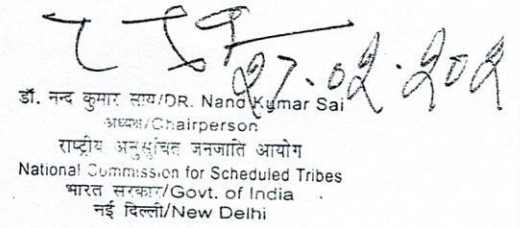 27.02.202
डॉ. नन्द कुमार साय/DR. Nand Kumar Sai
अध्यक्ष/Chairperson
राष्ट्रीय अनुसूचित जनजाति आयोग
National Commission for Scheduled Tribes
भारत सरकार/Govt. of India
नई दिल्ली/New Delhi